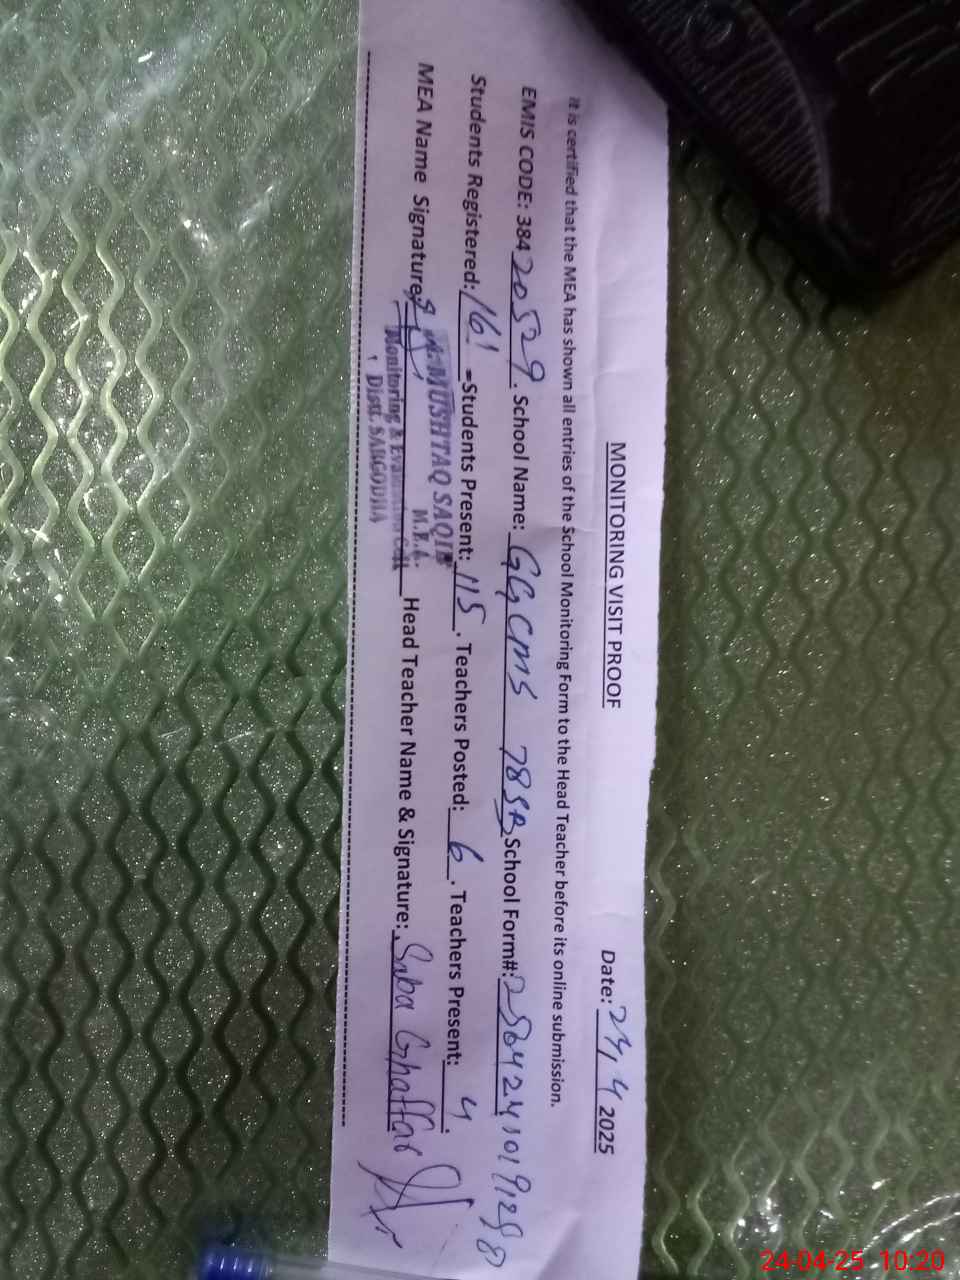 MONITORING VISIT PROOF Date: 23/4 2025
It is certified that the MEA has shown all entries of the School Monitoring Form to the Head Teacher before its online submission.
EMIS CODE: 38420529. School Name: GGCMS 78SB School Form#:
Students Registered: 161 -Students Present: 115. Teachers Posted: 6. Teachers Present: 4.
MEA Name Signature Head Teacher Name & Signature: Saba Ghaffar
MUSHTAQ SAQIB
M.E.A.
Monitoring &
Distt. SARGODHA
24-04-25 10:20